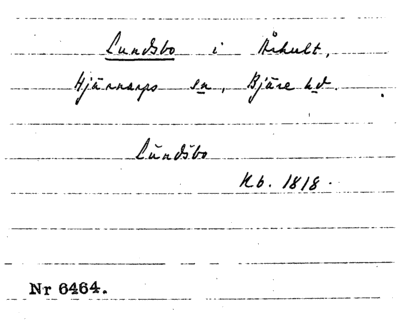 Lundsbo i Åhult,
Hjärnarps sn, Bjäre hd.
Lundsbo
Hb. 1818.
Nr 6464.